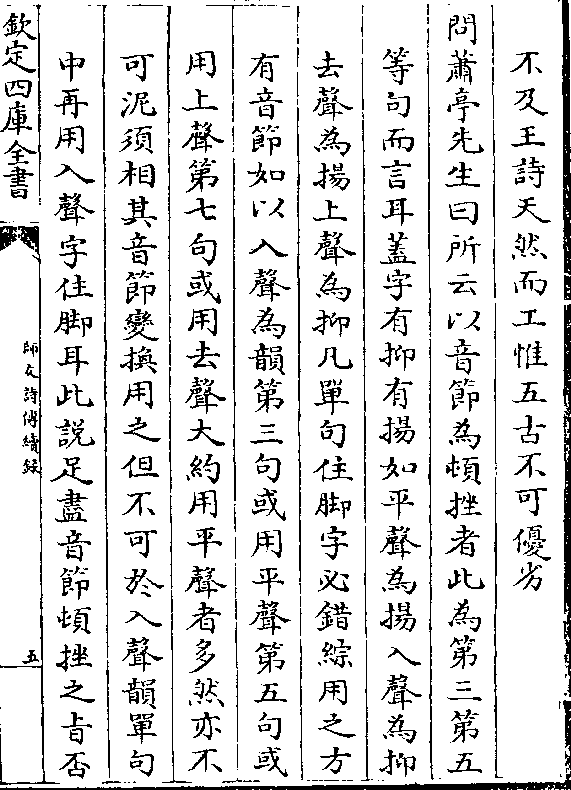 不及王詩天然而工惟五古不可優劣
問蕭亭先生曰所云以音節為頓挫者此為第三第五
等句而言耳蓋字有抑有揚如平聲為揚入聲為抑
去聲為揚上聲為抑凡單句住脚字必錯綜用之方
有音節如以入聲為韻第三句或用平聲第五句或
用上聲第七句或用去聲大約用平聲者多然亦不
可泥須相其音節變換用之但不可於入聲韻單句
中再用入聲字住脚耳此說足盡音節頓挫之旨否
欽定四庫全書
師友詩傳續録
五